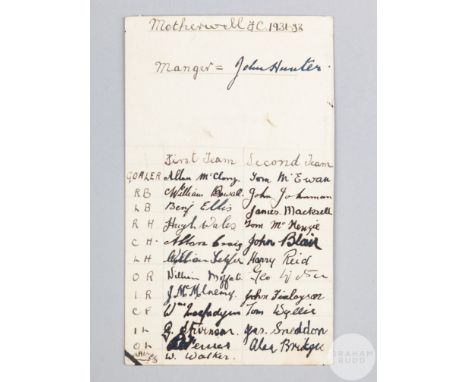 Motherwell F.C. 1931-32
Manger = John Hunter.
First Team Second Team
GOALER Allan McClory Tom McEwan
RB William Dowall John Johnman
LB Benj Ellis James Mackrell
RH Hugh Wales Tom McKenzie
CH Allan Craig John Blair
LH William Telfer Harry Reid
OR William Moffat Geo
IR J. McMenemy John Finlayson
CF Wm McFadyen Tom Wyllie
IL G. Stevenson. Jas. Sneddon
OL Ferrier Alex Bridge
W. Walker.
GRAHAM BUDD